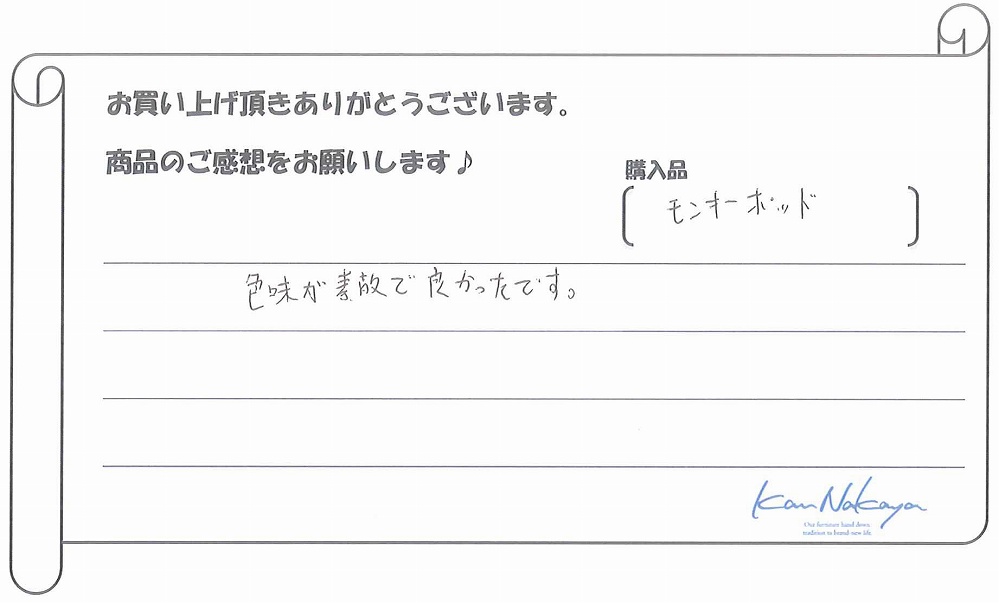 お買い上げ頂きありがとうございます。
商品のご感想をお願いします♪
購入品
モンキーポッド
色味が素敵で良かったです。
Kan Nakaya
Our furniture hand down
tradition to brand-new life